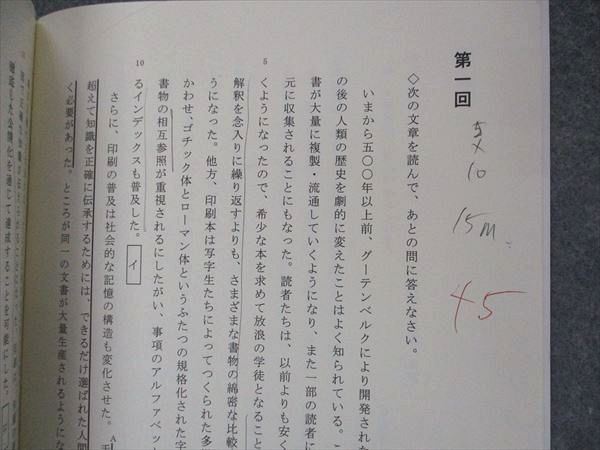 第一回
5×10
15m
45
◇次の文章を読んで、あとの問に答えなさい。
いまから五〇〇年以上前、グーテンベルクにより開発された
の後の人類の歴史を劇的に変えたことはよく知られている。こ
書が大量に複製・流通していくようになり、また一部の読者に
元に収集されることにもなった。読者たちは、以前よりも安く
5
くようになったので、希少な本を求めて放浪の学徒となること
解釈を念入りに繰り返すよりも、さまざまな書物の綿密な比較
うになった。他方、印刷本は写字生たちによってつくられた多
かわせ、ゴチック体とローマン体というふたつの規格化された字
書物の相互参照が重視されるにしたがい、事項のアルファベット
10
るインデックスも普及した。 イ
さらに、印刷の普及は社会的な記憶の構造も変化させた。A
超えて知識を正確に伝承するためには、できるだけ選ばれた人間
く必要があった。ところが同一の文書が大量生産されるようにな
徹底した公開化を通じて達成することを可能にした。